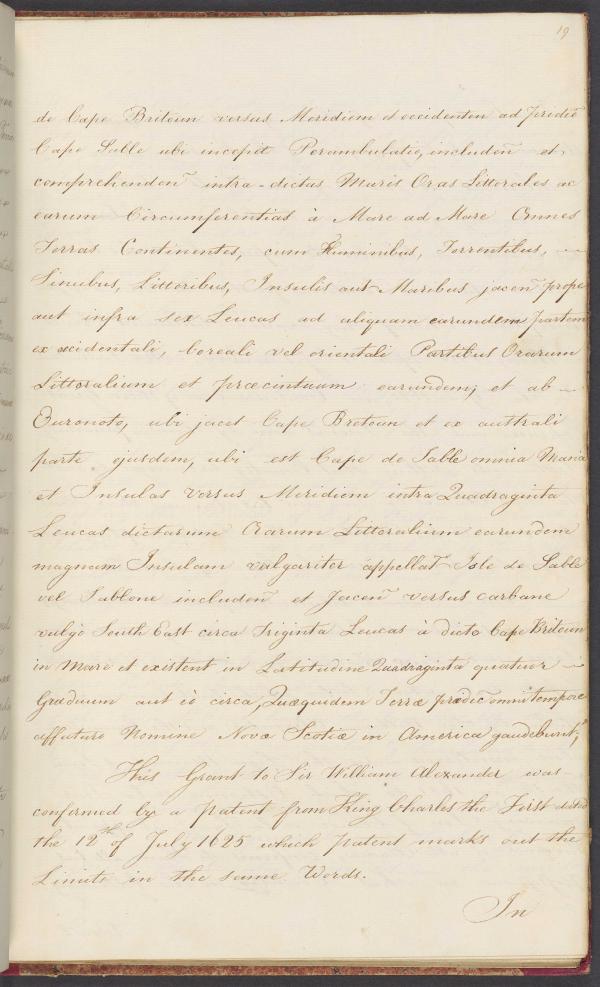 19
de Cape Britoun versus Meridiem et occidenten ad predic̃
Cape Sable ubi incepit Perambulatio, includeñ et
comprehendeñ intra-dictas Maris Oras Littorales ac
earum Circumferentias à Mare ad Mare Omnes
Terras Continentes, cum Fluminibus, Torrentibus, —
Sinubus, Littoribus, Insulis aut Maribus jaceñ prope
aut infra sex Leucas ad aliquam earundem partem
ex occidentali, boreali vel orientali Partibus Orarum
Littoralium et præcinctuum earundem; et ab —
Euronoto, ubi jacet Cape Bretoun et ex australi
parte ejusdem, ubi est Cape de Sable omnia Maria
et Insulas versus Meridiem intra Quadraginta
Leucas dictarum Orarum Littoralium earundem
magnam Insulam vulgariter appellat̃ Isle de Sable
vel Sablone includeñ et Jaceñ versus carbane
vulgo South East circa Triginta Leucas à dicto Cape Britoun
in Mare et existent in Latitudine Quadraginta quatuor —
Graduum aut eò circa, Quæquidem Terræ prædic̃ omni tempore
affuturo Nomine Novæ Scotiæ in America gaudebunt;"
This Grant to Sir William Alexander was
confirmed by a patent from King Charles the First dated
the 12th of July 1625 which patent marks out the
Limits in the same Words.
In